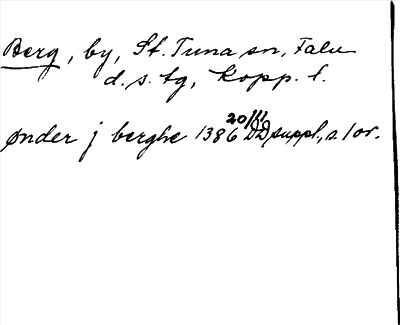 Berg, by, St. Tuna sn, Falu
d. s. tg, Kopp. l.
ønder j berghe 1386 20/11 DD suppl., s. 105.